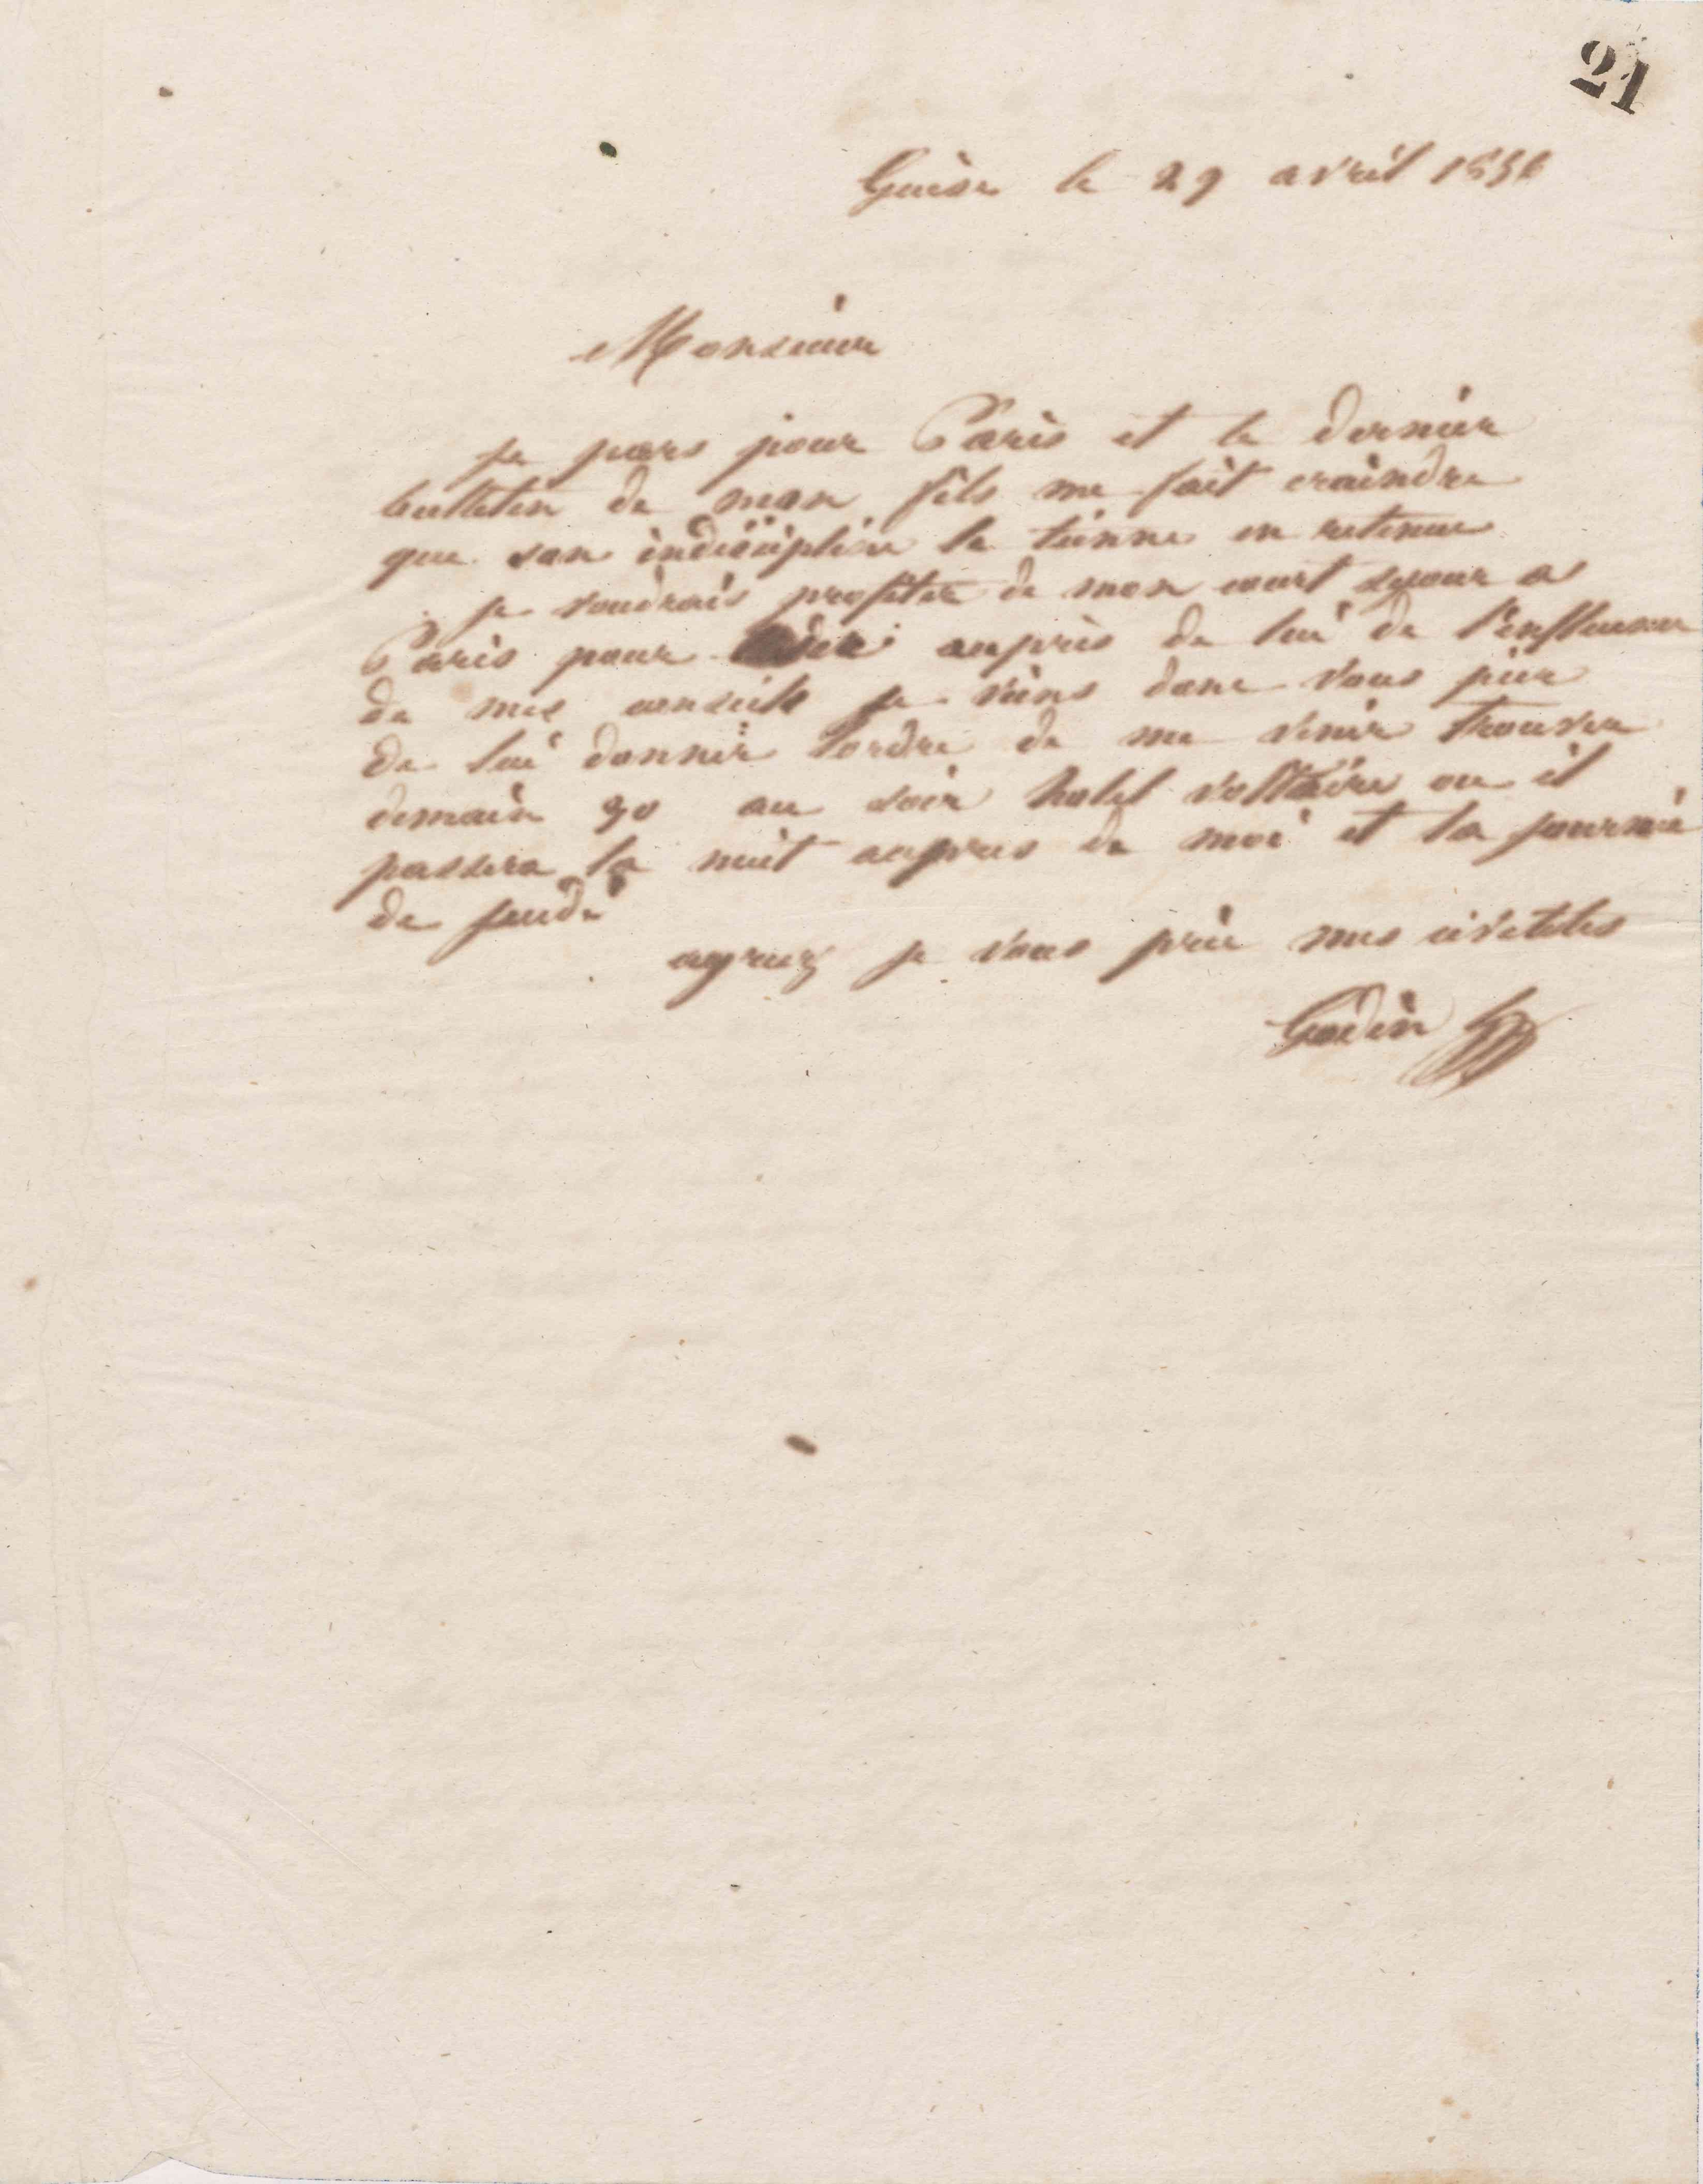 21
Guise le 29 avril 1856
Monsieur
je pars pour Paris et le dernier
bulletin de mon fils me fait craindre
que son indisciplin le tienne en retenue
je voudrais profiter de mon court sejour a
Paris pour auprès de lui de l'influence
de mes conseils je viens donc vous prier
de lui donner lordre de me venir trouver
demain 30 au soir hotel voltaire ou il
passera la nuit aupres de moi et la journée
de jeudi
agreez je vous prie mes civilités
Godin